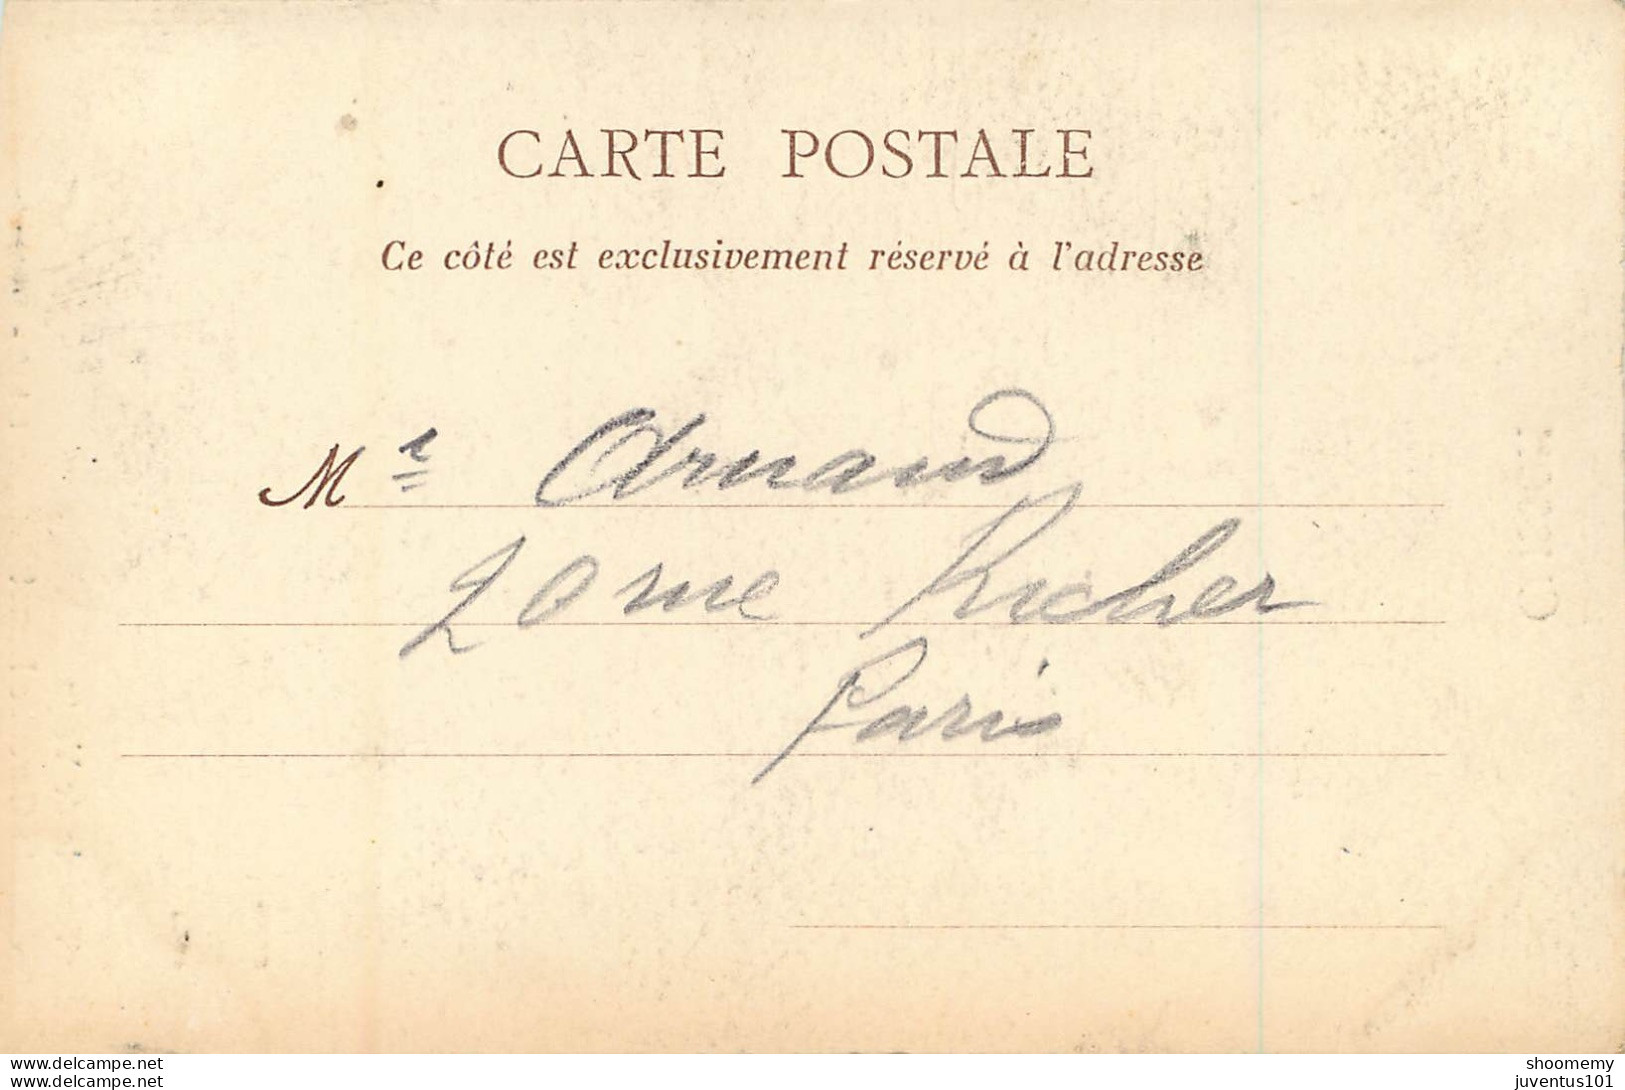 CARTE POSTALE
Ce côté est exclusivement réservé à l'adresse
Mr Arnaud
20 rue Richer
Paris
www.delcampe.net
www.delcampe.net
shoomemy
juventus101